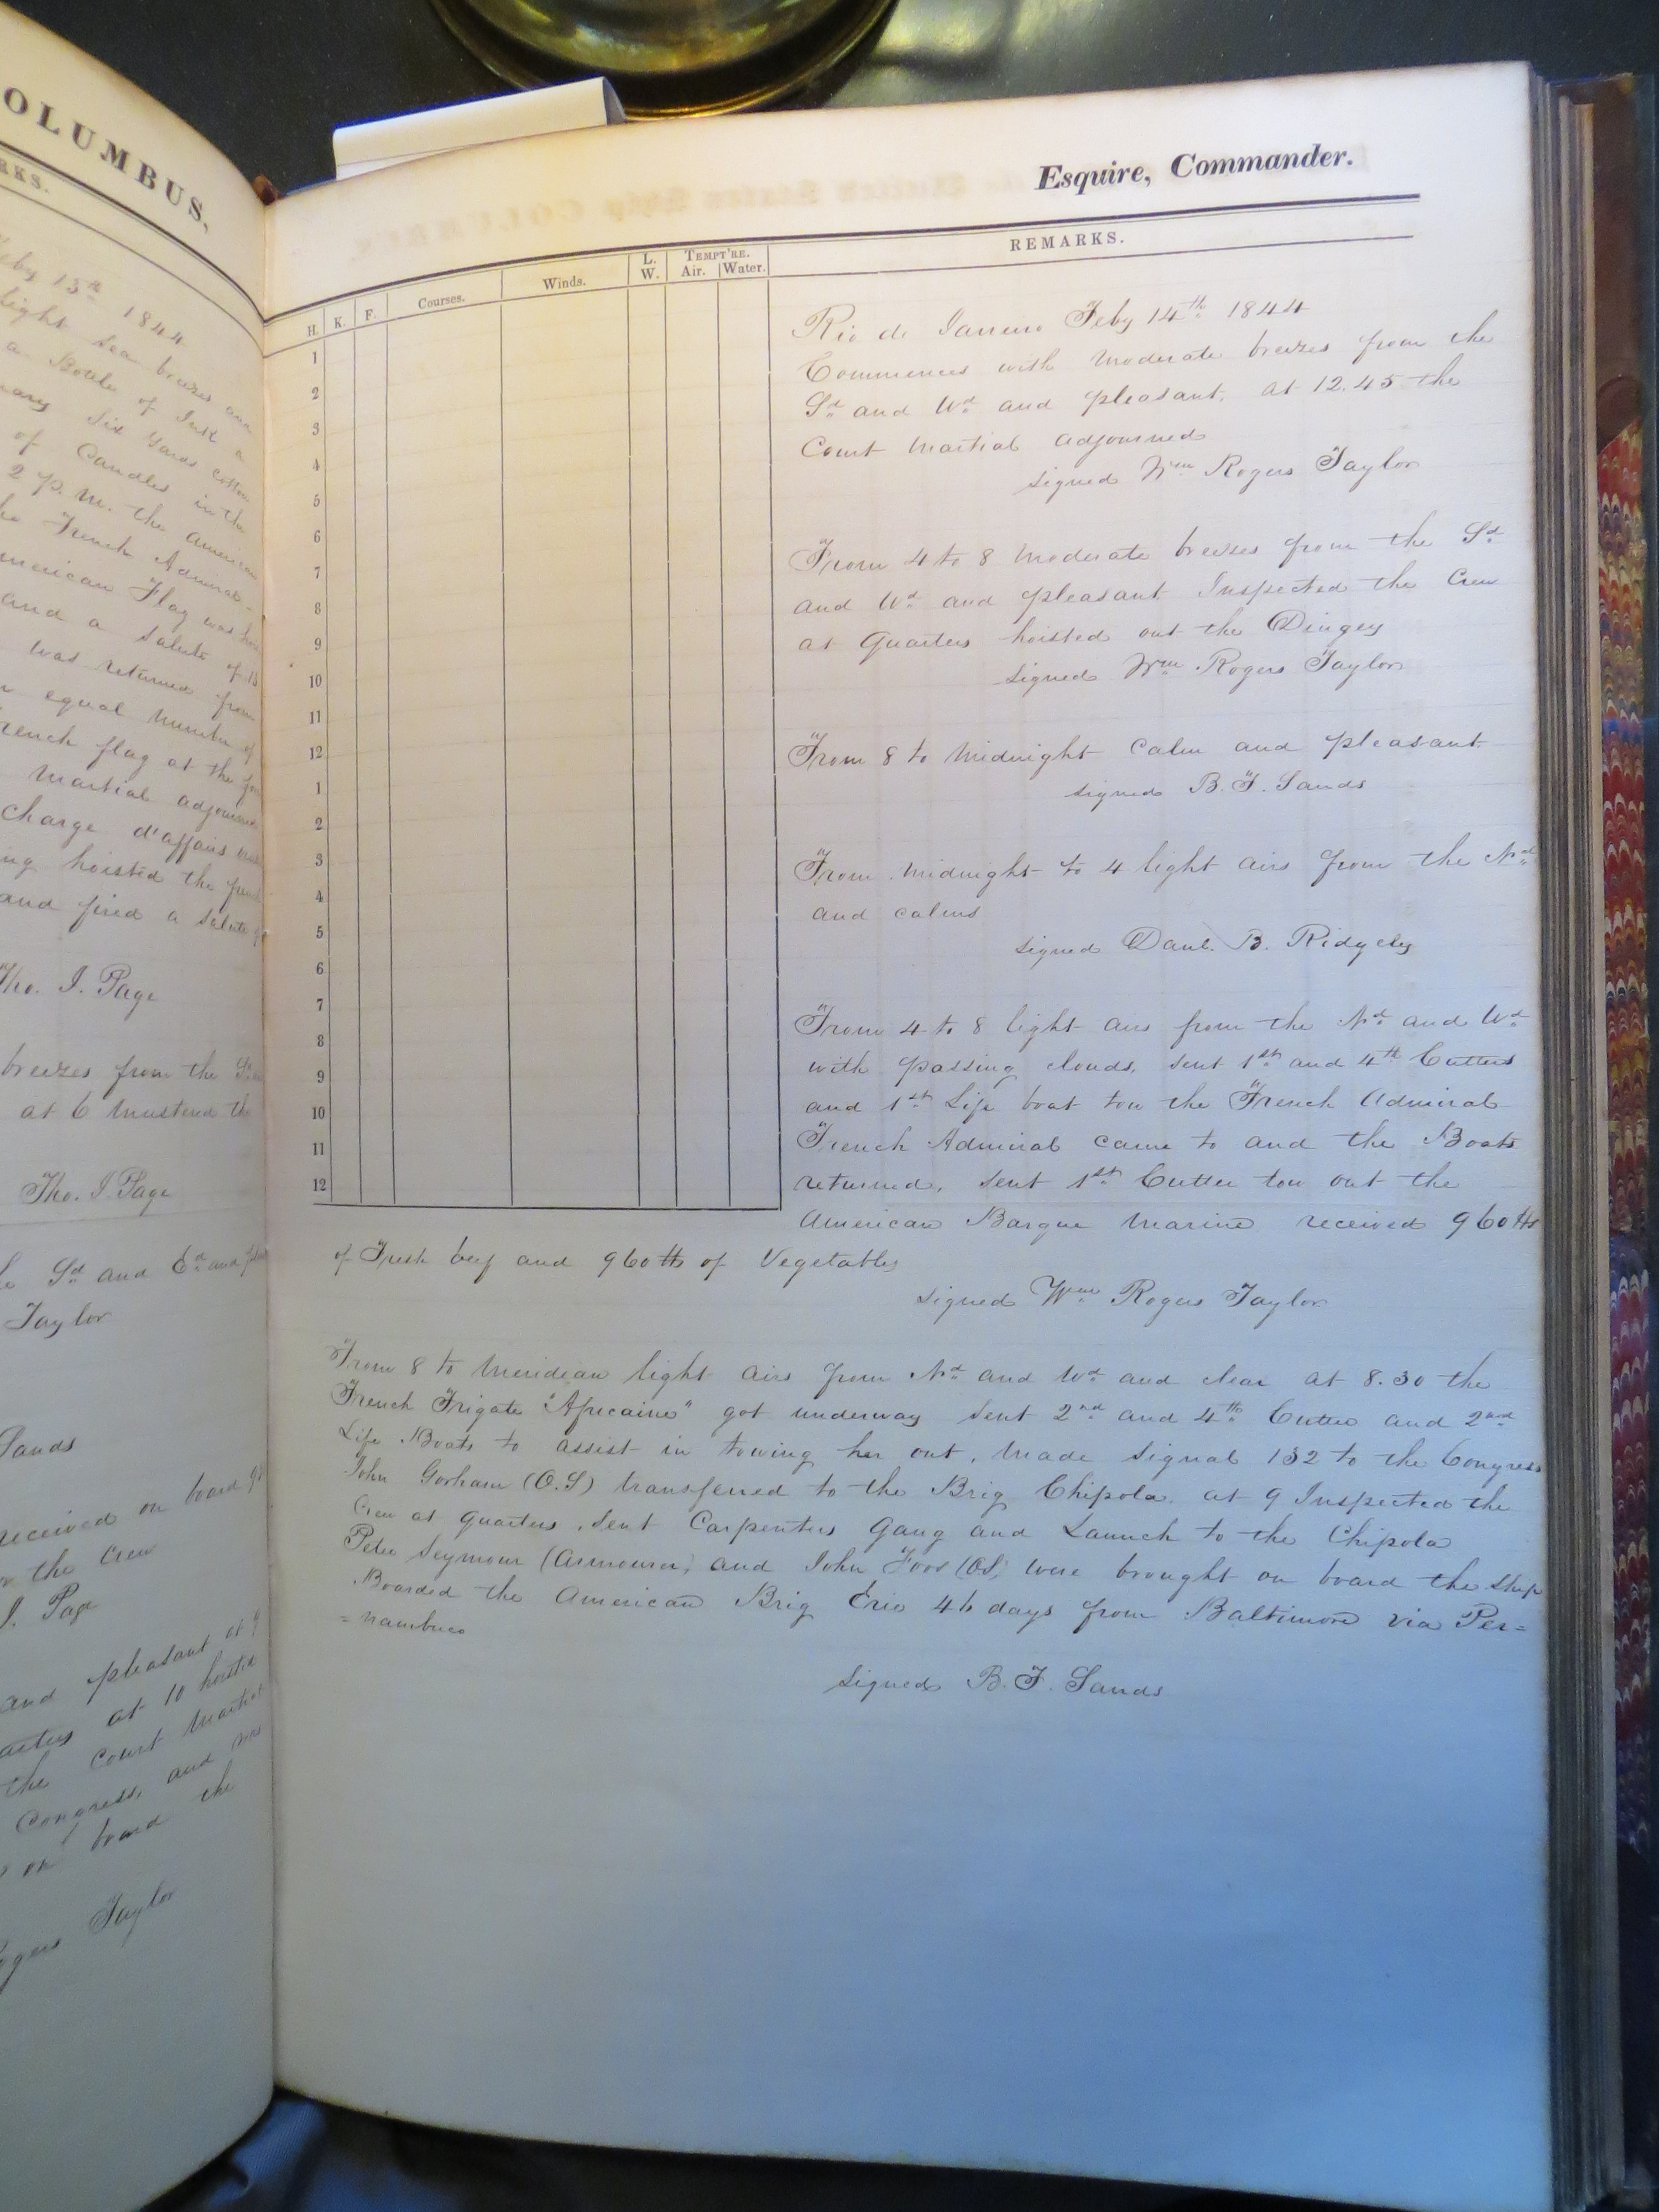 OLUMBUS.
RKS.
Feby 13th 1844
light sea breezes and
a Bottle of Ink a
Six Yards cotton
of Candles in the
2 P.M. the American
French Admiral
American Flag was
and a salute of
was returned from
equal number of
French flag at the
Martial adjourned
charge d'affairs
hoisted the
and fired a salute
Tho. J. Page
breezes from the
at 6 mustered the
Tho. J. Page
Sd and Ed and
Taylor
Sands
received on board
the Crew
J. Page
and pleasant at 9
at 10 hoisted
the Court Martial
Congress, and
on board the
Rogers Taylor
Esquire, Commander.
H. K. F. Courses. Winds. L. W. TEMPT'RE. Air. Water. REMARKS.
1
2
3
4
5
6
7
8
9
10
11
12
1
2
3
4
5
6
7
8
9
10
11
12
Rio de Janeiro Feby 14th 1844
Commences with moderate breezes from the
Sd and Wd and pleasant. at 12.45 the
Court Martial adjourned
signed Wm Rogers Taylor
From 4 to 8 moderate breezes from the Sd
and Wd and pleasant Inspected the Crew
at Quarters hoisted out the Dingey
signed Wm Rogers Taylor
From 8 to Midnight Calm and pleasant
signed B. F. Sands
From midnight to 4 light airs from the Nd
and calms
signed Danl. B. Ridgely
From 4 to 8 light airs from the Nd and Wd
with passing clouds, sent 1st and 4th Cutters
and 1st Life boat tow the French Admiral
French Admiral came to and the Boats
returned, sent 1st Cutter tow out the
American Barque Marine received 960 lb
of Fresh beef and 960 lb of Vegetables
signed Wm Rogers Taylor
From 8 to Meridian light airs from Nd and Wd and clear at 8.30 the
French Frigate "Africaine" got underway sent 2nd and 4th Cutter and 2nd
Life Boats to assist in towing her out, made signal 132 to the Congress
John Gorham (O.S) transferred to the Brig Chipola. at 9 Inspected the
Crew at quarters, sent Carpenters Gang and Launch to the Chipola
Peter Seymour (Armourer) and John Foos (OS) were brought on board the ship
Boarded the American Brig Erie 46 days from Baltimore via Per=
=nambuco
signed B. F. Sands